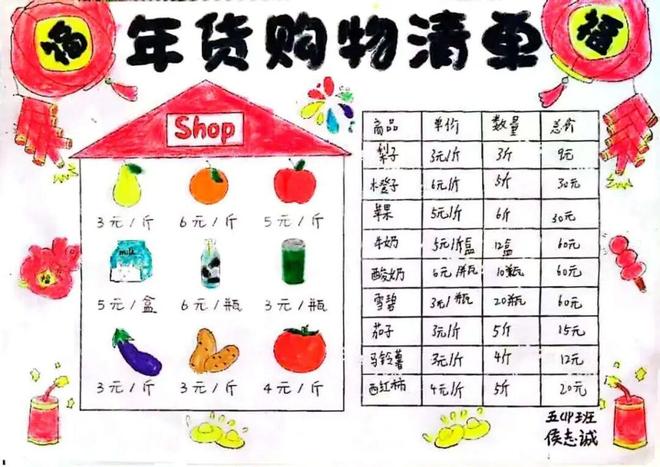 福 年货购物清单 福
Shop
3元/斤 6元/斤 5元/斤
milk
5元/盒 6元/瓶 3元/瓶
3元/斤 3元/斤 4元/斤
商品 单价 数量 总价
梨子 3元/斤 3斤 9元
橙子 6元/斤 5斤 30元
苹果 5元/斤 6斤 30元
牛奶 5元/盒 12盒 60元
酸奶 6元/瓶 10瓶 60元
雪碧 3元/瓶 20瓶 60元
茄子 3元/斤 5斤 15元
马铃薯 3元/斤 4斤 12元
西红柿 4元/斤 5斤 20元
福
五(4)班
侯志诚